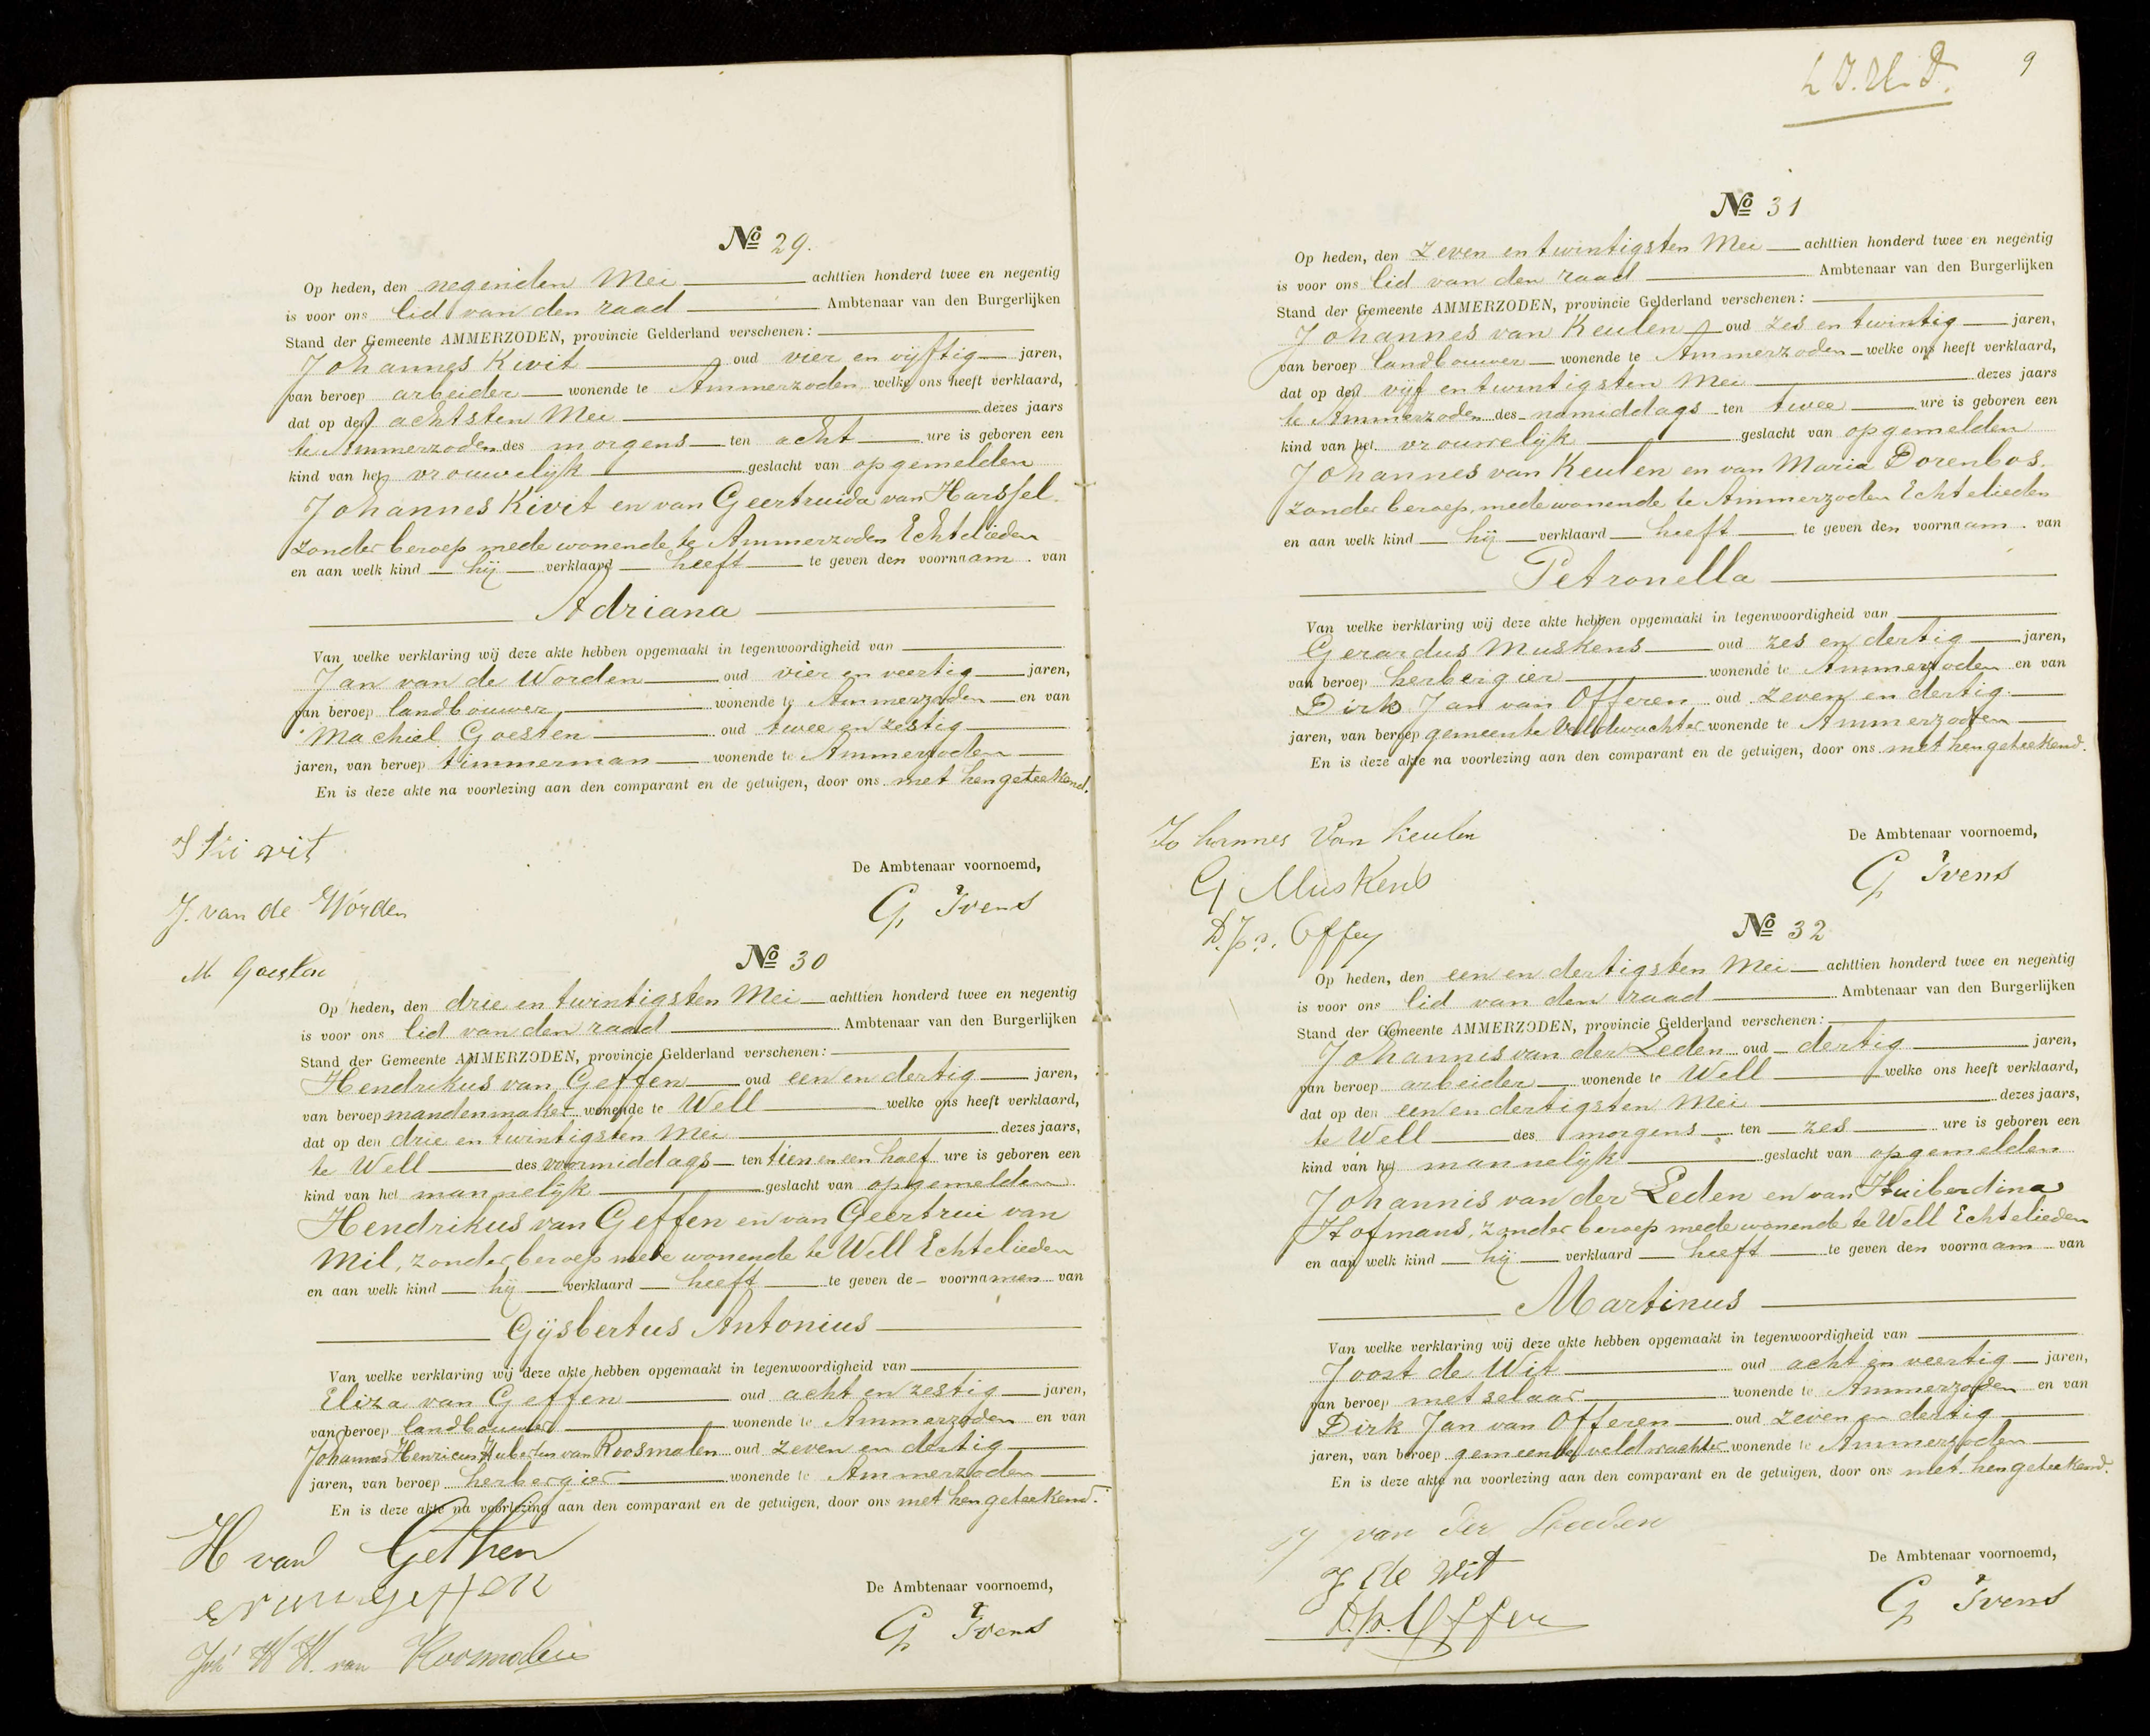 No 29.
Op heden, den negenden Mei achttien honderd twee en negentig
is voor ons lid van den raad Ambtenaar van den Burgerlijken
Stand der Gemeente AMMERZODEN, provincie Gelderland verschenen:
Johannes Kivit oud vier en vijftig jaren,
van beroep arbeider wonende te Ammerzoden welke ons heeft verklaard,
dat op den achtsten Mei dezes jaars
te Ammerzoden des morgens ten acht ure is geboren een
kind van het vrouwelijk geslacht van opgemelden
Johannes Kivit en van Geertruida van Harssel.
zonder beroep mede wonende te Ammerzoden Echtelieden
en aan welk kind hij verklaard heeft te geven den voornaam van
Adriana
Van welke verklaring wij deze akte hebben opgemaakt in tegenwoordigheid van
Jan van de Worden oud vier en veertig jaren,
van beroep landbouwer wonende te Ammerzoden en van
Machiel Goesten oud twee en zestig
jaren, van beroep timmerman wonende te Ammerzoden
En is deze akte na voorlezing aan den comparant en de getuigen, door ons met hen geteekend.
J Kievit
J. van de Wörden
M Goesten
De Ambtenaar voornoemd,
G Ivens
No 30
Op heden, den drie en twintigsten Mei achttien honderd twee en negentig
is voor ons lid van den raad Ambtenaar van den Burgerlijken
Stand der Gemeente AMMERZODEN, provincie Gelderland verschenen:
Hendrikus van Geffen oud een en dertig jaren,
van beroep mandenmaker wonende te Well welke ons heeft verklaard,
dat op den drie en twintigsten Mei dezes jaars,
te Well des voormiddags ten tien en een half ure is geboren een
kind van het mannelijk geslacht van opgemelden
Hendrikus van Geffen en van Geertrui van
Mil, zonder beroep mede wonende te Well Echtelieden
en aan welk kind hij verklaard heeft te geven de voornamen van
Gijsbertus Antonius
Van welke verklaring wij deze akte hebben opgemaakt in tegenwoordigheid van
Eliza van Geffen oud acht en zestig jaren,
van beroep landbouwer wonende te Ammerzoden en van
Johannes Henricus Hubertus van Roosmalen oud zeven en dertig
jaren, van beroep herbergier wonende te Ammerzoden
En is deze akte na voorlezing aan den comparant en de getuigen, door ons met hen geteekend.
H van Geffen
E van geffen
Joh H H. van Roosmalen
De Ambtenaar voornoemd,
G Ivens
9
No 31
Op heden, den zeven en twintigsten Mei achttien honderd twee en negentig
is voor ons lid van den raad Ambtenaar van den Burgerlijken
Stand der Gemeente AMMERZODEN, provincie Gelderland verschenen:
Johannes van Keulen oud zes en twintig jaren,
van beroep landbouwer wonende te Ammerzoden welke ons heeft verklaard,
dat op den vijf en twintigsten Mei dezes jaars
te Ammerzoden des namiddags ten twee ure is geboren een
kind van het vrouwelijk geslacht van opgemelden
Johannes van Keulen en van Maria Dorenbos.
zonder beroep, mede wonende te Ammerzoden Echtelieden
en aan welk kind hij verklaard heeft te geven den voornaam van
Petronella
Van welke verklaring wij deze akte hebben opgemaakt in tegenwoordigheid van
Gerardus Muskens oud zes en dertig jaren,
van beroep herbergier wonende te Ammerzoden en van
Dirk Jan van Offeren oud zeven en dertig
jaren, van beroep gemeente veldwachter wonende te Ammerzoden
En is deze akte na voorlezing aan den comparant en de getuigen, door ons met hen geteekend.
Johannes Van Keulen
G Muskens
De Ambtenaar voornoemd,
G Ivens
No 32
Op heden, den een en dertigsten Mei achttien honderd twee en negentig
is voor ons lid van den raad Ambtenaar van den Burgerlijken
Stand der Gemeente AMMERZODEN, provincie Gelderland verschenen:
Johannis van der Leden oud dertig jaren,
van beroep arbeider wonende te Well welke ons heeft verklaard,
dat op den een en dertigsten Mei dezes jaars,
te Well des morgens ten zes ure is geboren een
kind van het mannelijk geslacht van opgemelden
Johannis van der Leden en van Huiberdina
Hofmans, zonder beroep mede wonende te Well Echtelieden
en aan welk kind hij verklaard heeft te geven den voornaam van
Martinus
Van welke verklaring wij deze akte hebben opgemaakt in tegenwoordigheid van
Joost de Wit oud acht en veertig jaren,
van beroep metselaar wonende te Ammerzoden en van
Dirk Jan van Offeren oud zeven en dertig
jaren, van beroep gemeente veldwachter wonende te Ammerzoden
En is deze akte na voorlezing aan den comparant en de getuigen, door ons met hen geteekend.
J van der Leeden
J de Wit
De Ambtenaar voornoemd,
G Ivens